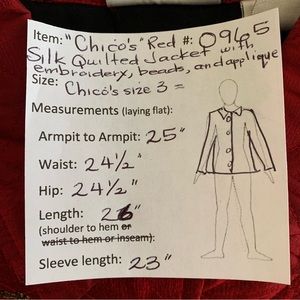 Item: "Chico's" Red #: 0965
Silk Quilted Jacket with
embroidery, beads, and applique
Size: Chico's size 3 =
Measurements (laying flat):
Armpit to Armpit: 25"
Waist: 24½"
Hip: 24½"
Length: 26"
(shoulder to hem or
waist to hem or inseam):
Sleeve length: 23"